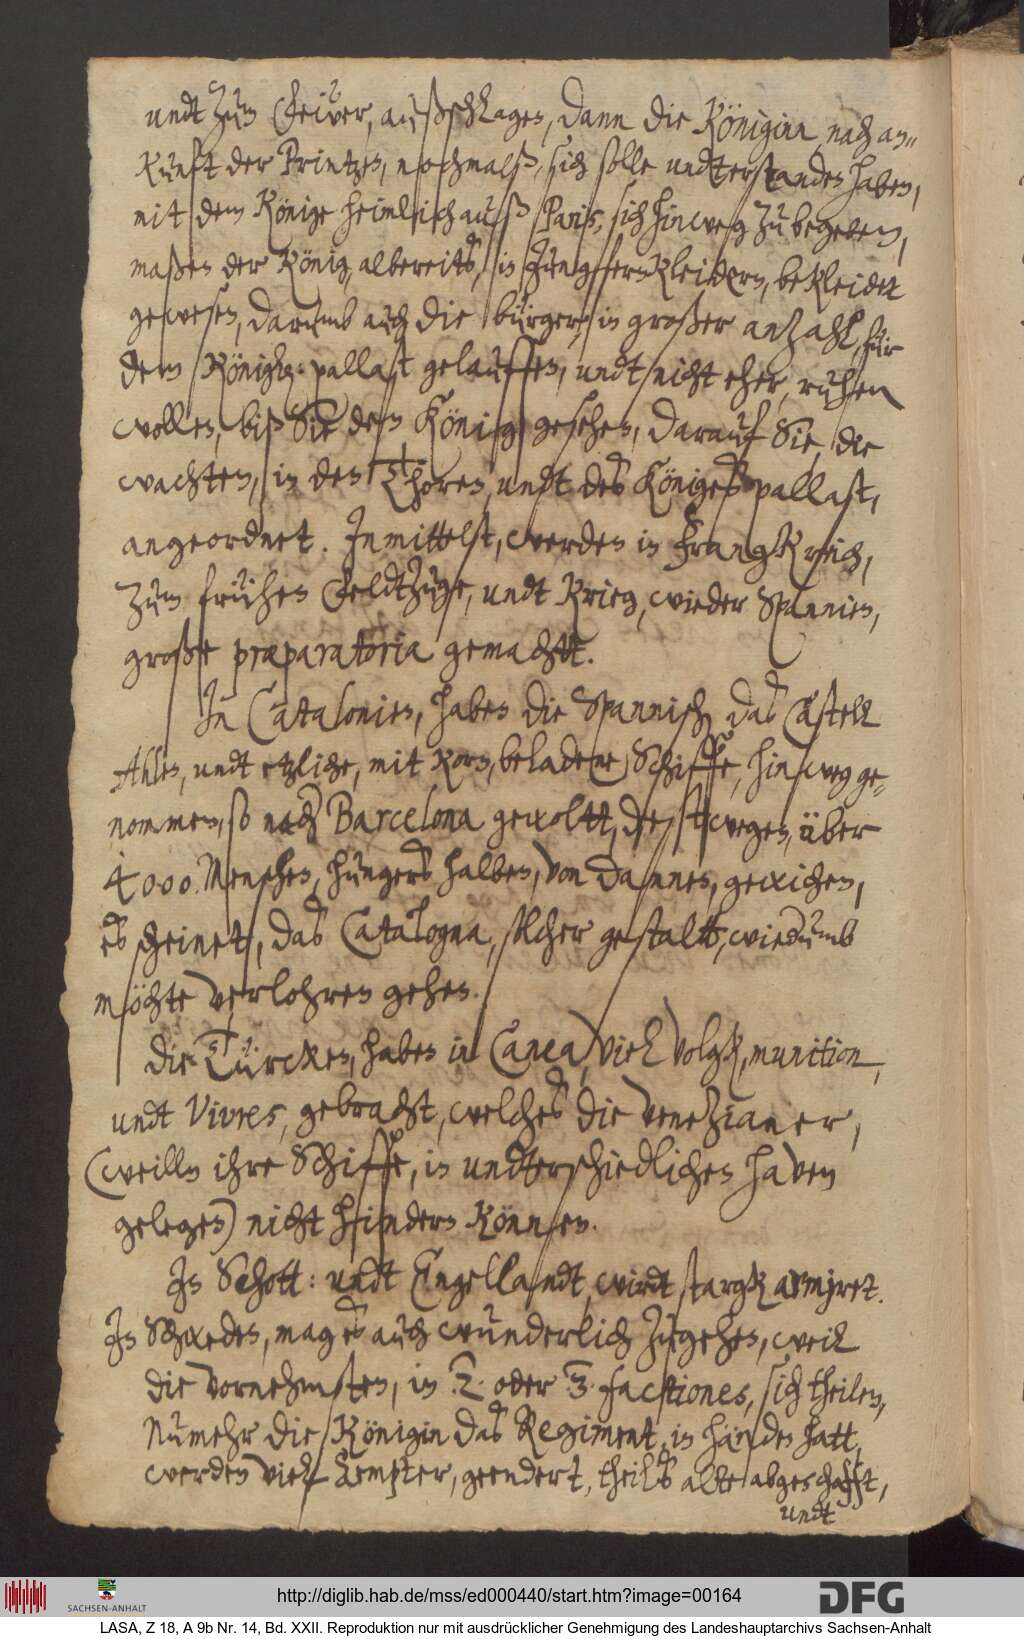 undt zum Feüwer, außschlagen, dann die Königinn, nach an„
kunft der Printzen, nochmalß, sich solle undterstanden haben,
mit dem Könige heimlich auß Paris, sich hinweg zu begeben,
maßen der König, albereits, in Jungfernkleidern, bekleidet
gewesen, darumb auch die bürger, in großer anzahl, für
dem Königl: pallast gelauffen, undt nicht eher, ruhen
wollen, biß Sie den König gesehen, darauf Sie, die
wachten, in den Thoren, undt des Königes pallast,
angeordnet. Inmittelst, werden in Frangkreich,
zum frühen Feldtzuge, undt Krieg, wieder Spannien,
große præparatoria gemachtt.
In Catalonien, haben die Spannisch, das Castell
Ahlen, undt etzliche, mit korn, beladene Schiffe, hinweg ge„
nommen, so nach Barcelona gewoltt, destwegen, über
4000. Menschen, hungers halben, von dannen, gewichen,
es scheinet, das Catalogna, solcher gestaltt, wiedrumb
möchte verlohren gehen.
Die Türcken, haben in Canea, viel volgk, munition,
undt Vivres, gebracht, welches die Venezianer,
(weilln ihre Schiffe, in undterschiedlichen haven
gelegen) nicht hindern können.
In Schott: undt Engellandt, wirdt stargk armiret.
In Schweden, mag es auch wunderlich zugehen, weil
die vornehmsten, in .2. oder 3. factiones, sich theilen,
Numehr die Königin das Regiment, in händen hatt,
werden viel Aempter, geendert, theils alte abgeschafft,
undt
SACHSEN-ANHALT
http://diglib.hab.de/mss/ed000440/start.htm?image=00164
DFG
LASA, Z 18, A 9b Nr. 14, Bd. XXII. Reproduktion nur mit ausdrücklicher Genehmigung des Landeshauptarchivs Sachsen-Anhalt